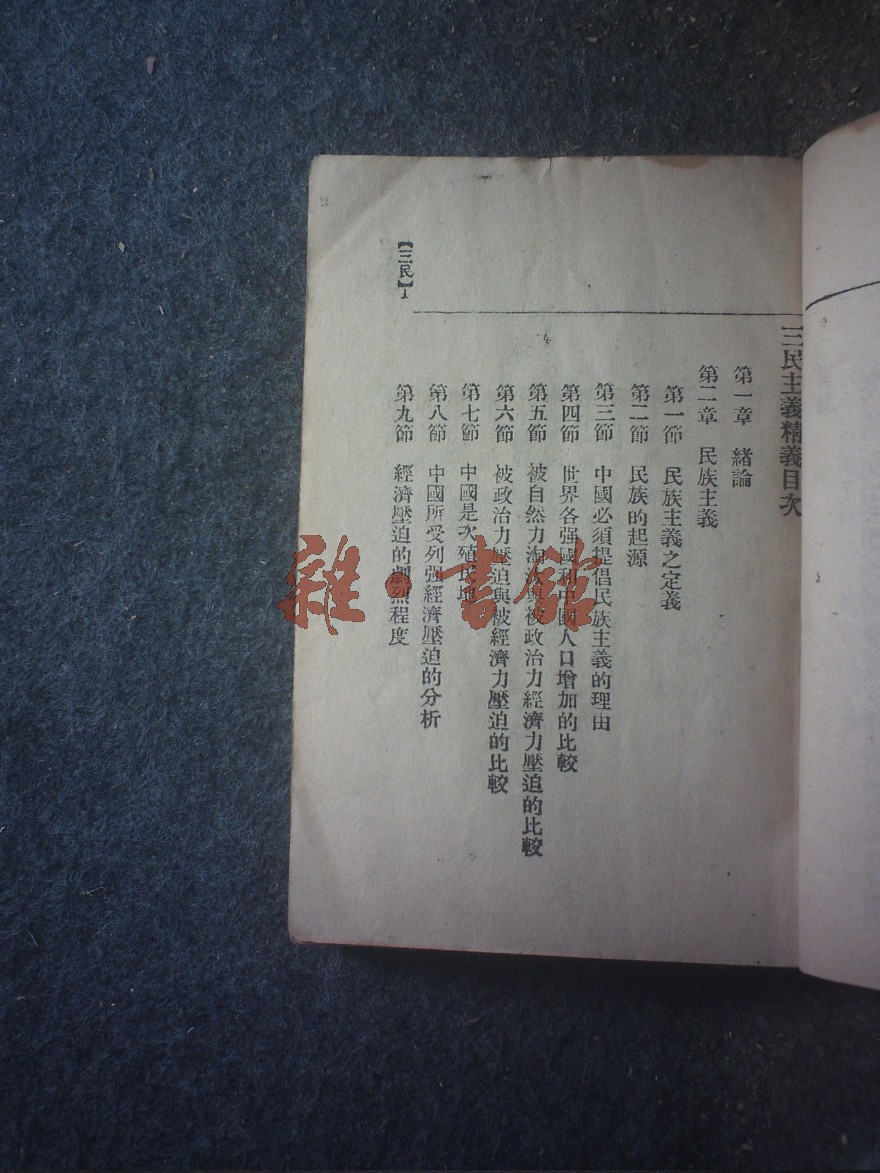 三民主義精義目次
第一章　緒論
第二章　民族主義
第一節　民族主義之定義
第二節　民族的起源
第三節　中國必須提倡民族主義的理由
第四節　世界各强國和中國人口增加的比較
第五節　被自然力淘汰與被政治力經濟力壓迫的比較
第六節　被政治力壓迫與被經濟力壓迫的比較
第七節　中國是次殖民地
第八節　中國所受列强經濟壓迫的分析
第九節　經濟壓迫的劇烈程度
【三民】1
雜·書館